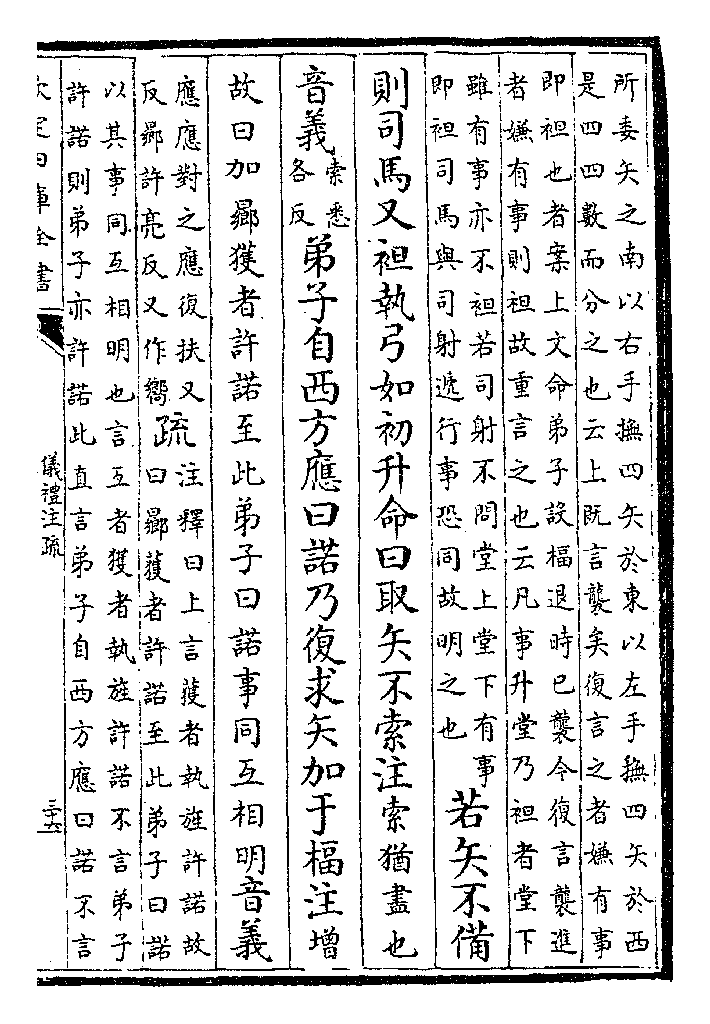 所委矢之南以右手撫四矢於東以左手撫四矢於西
是四四數而分之也云上既言襲矣復言之者嫌有事
即袒也者案上文命弟子設楅退時已襲今復言襲進
者嫌有事則袒故重言之也云凡事升堂乃袒者堂下
雖有事亦不袒若司射不問堂上堂下有事
即袒司馬與司射遞行事恐同故明之也
若矢不備
則司馬又袒執弓如初升命曰取矢不索注索猶盡也
音義索悉各反弟子自西方應曰諾乃復求矢加于楅注增
故曰加曏獲者許諾至此弟子曰諾事同互相明音義
應應對之應復扶又
反曏許亮反又作嚮
疏
注釋曰上言獲者執旌許諾故
曰曏獲者許諾至此弟子曰諾
以其事同互相明也言互者獲者執旌許諾不言弟子
許諾則弟子亦許諾此直言弟子自西方應曰諾不言
欽定四庫全書
儀禮注疏
三十六